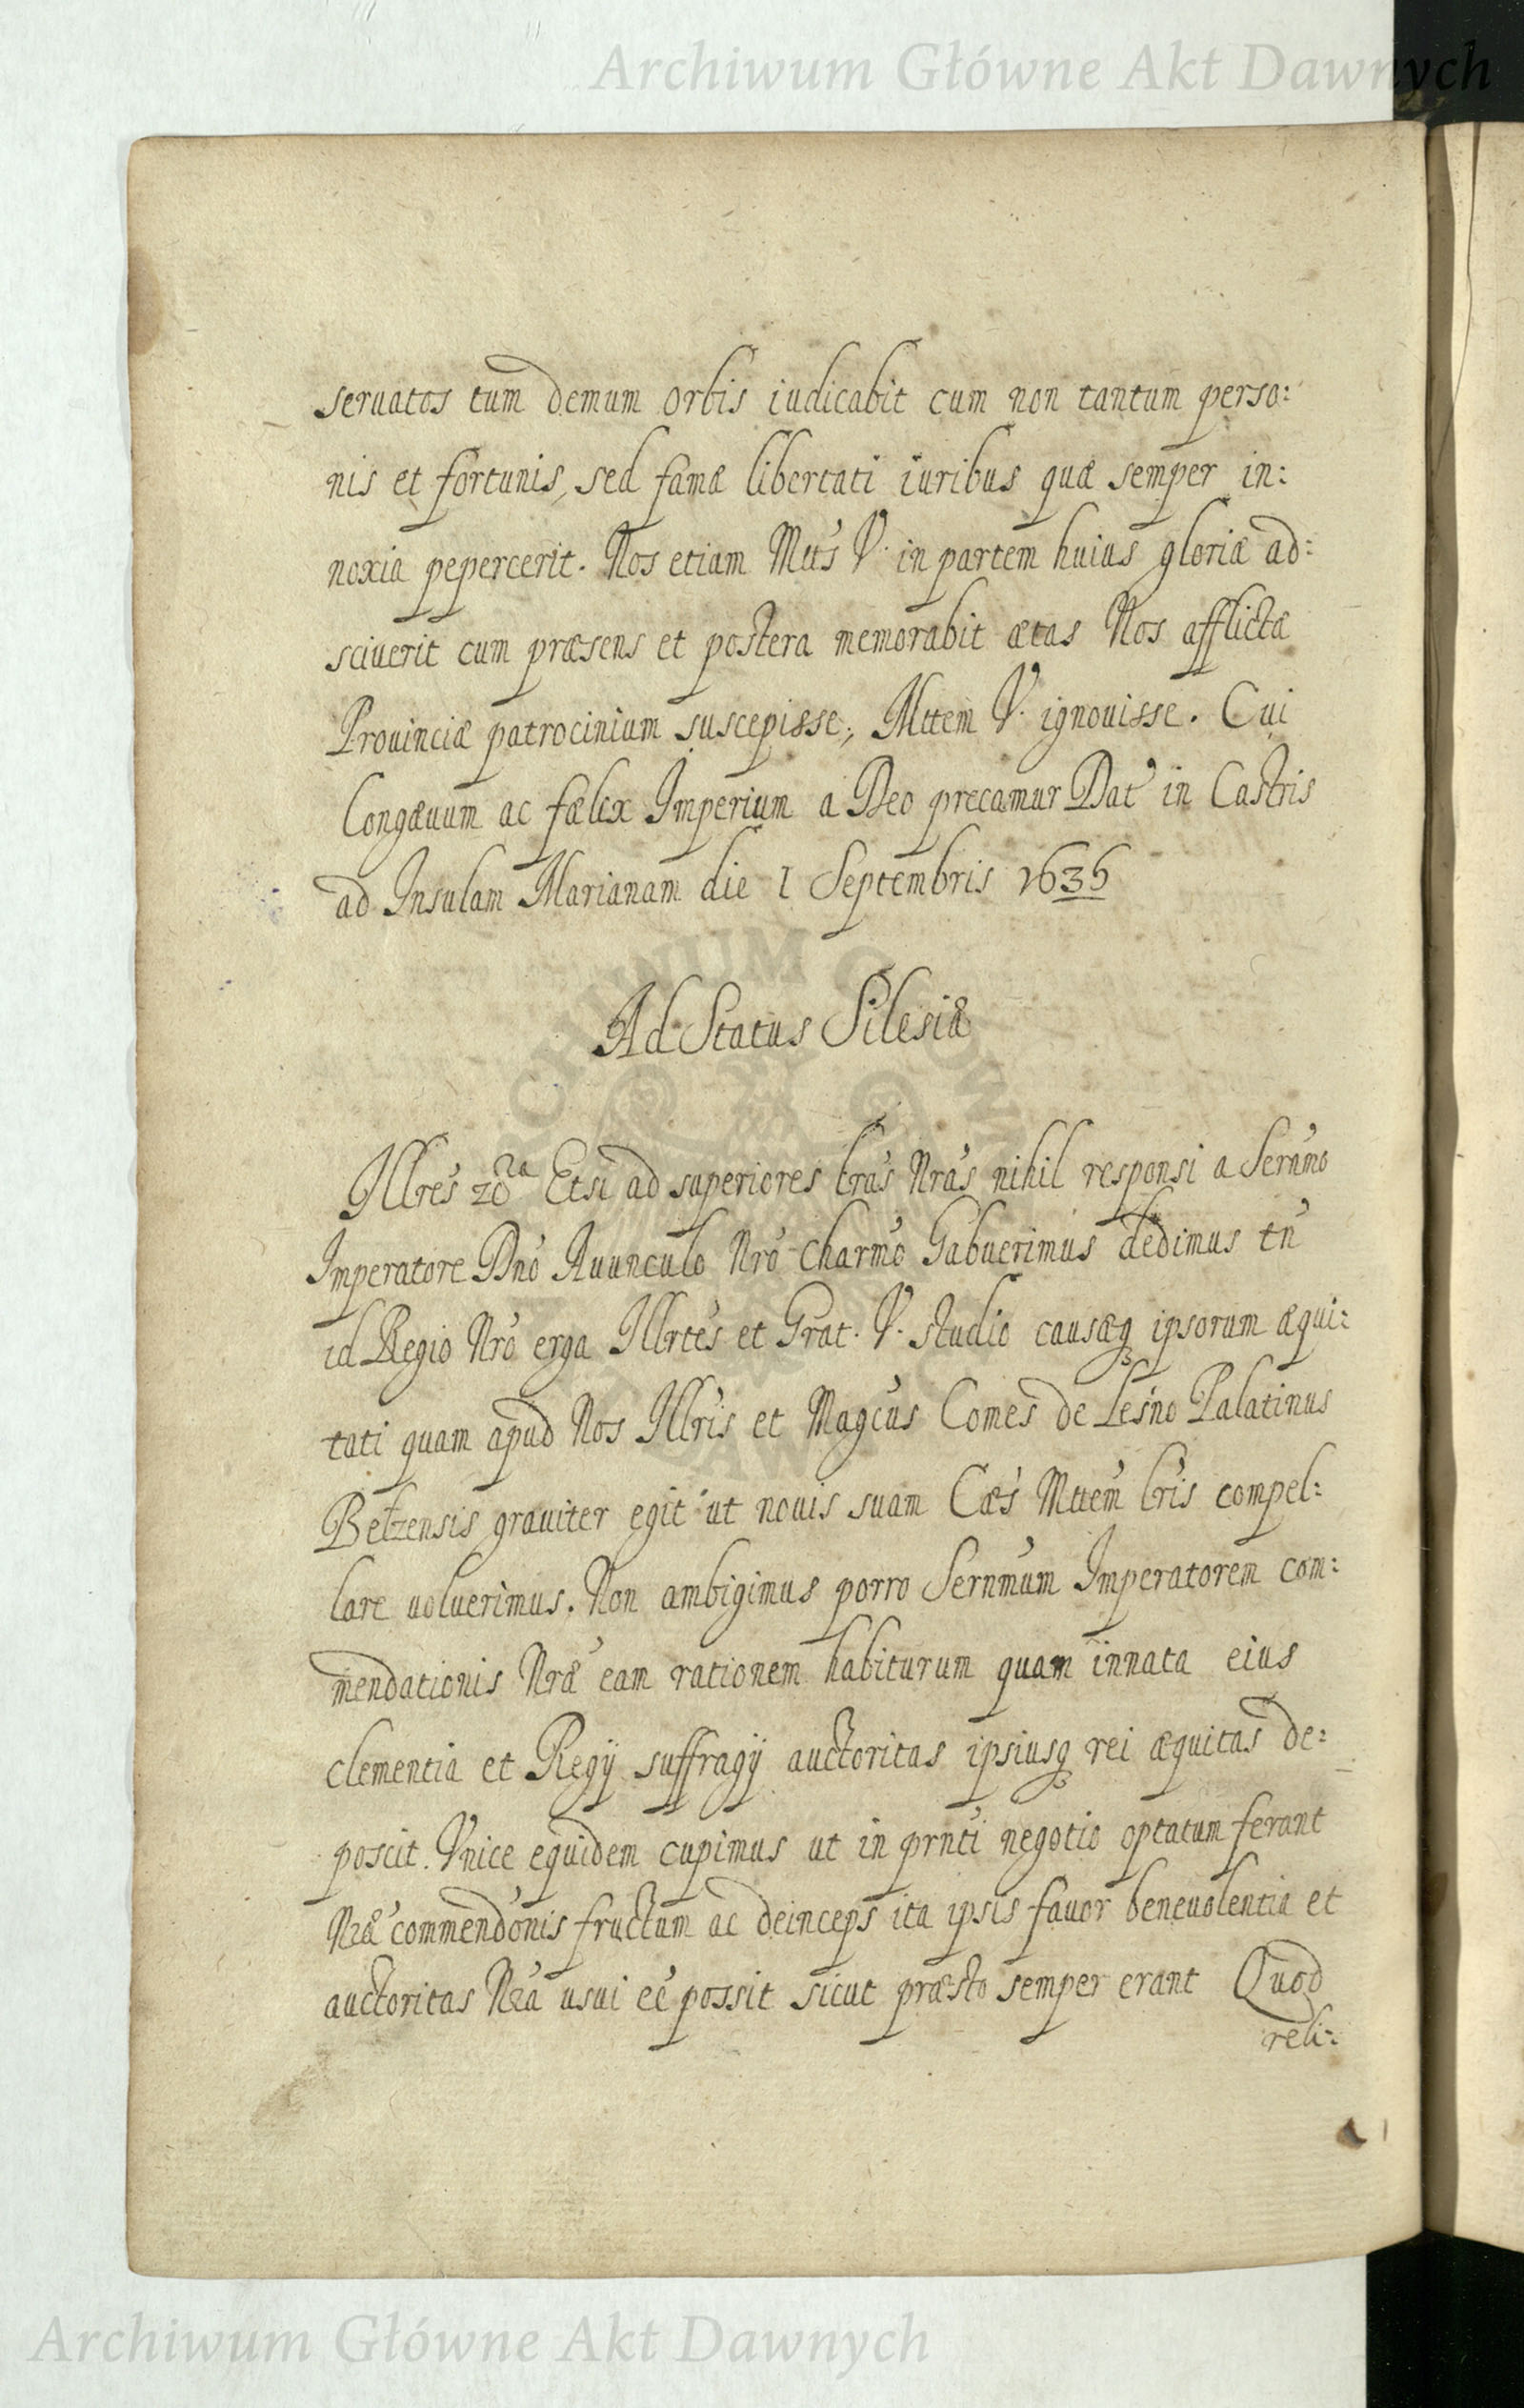 Archiwum Główne Akt Dawnych
seruatos tum demum orbis iudicabit cum non tantum perso:
nis et fortunis, sed famæ libertati iuribus quæ semper in:
noxia pepercerit. Nos etiam Mtts V. in partem huius gloriæ ad:
sciuerit cum præsens et postera memorabit ætas Nos afflictæ
Prouinciæ patrocinium suscepisse, Mttem V. ignouisse. Cui
Longæuum ac fælix Imperium a Deo precamur Dat in Castris
ad Insulam Marianam die 1 Septembris 1635
Ad Status Silesiæ
Illres Etsi ad superiores lras Nras nihil responsi a Sernmo
Imperatore Dno Auunculo Nro Charmo habuerimus dedimus tn
id Regio Nro erga Illrtes et Grat. V. studio causæq ipsorum æqui:
tati quam apud Nos Illris et Magcus Comes de Leśno Palatinus
Bełzensis grauiter egit ut nouis suam Cæs Mttem lris compel:
lare uoluerimus. Non ambigimus porro Sernmum Imperatorem com:
mendationis Nræ eam rationem habiturum quam innata eius
clementia et Regij suffragij auctoritas ipsiusq rei æquitas de:
poscit. Vnice equidem cupimus ut in prnti negotio optatum ferant
Nræ commendonis fructum ac deinceps ita ipsis fauor beneuolentia et
auctoritas Nra usui eé possit sicut præsto semper erant Quod
reli:
Archiwum Główne Akt Dawnych